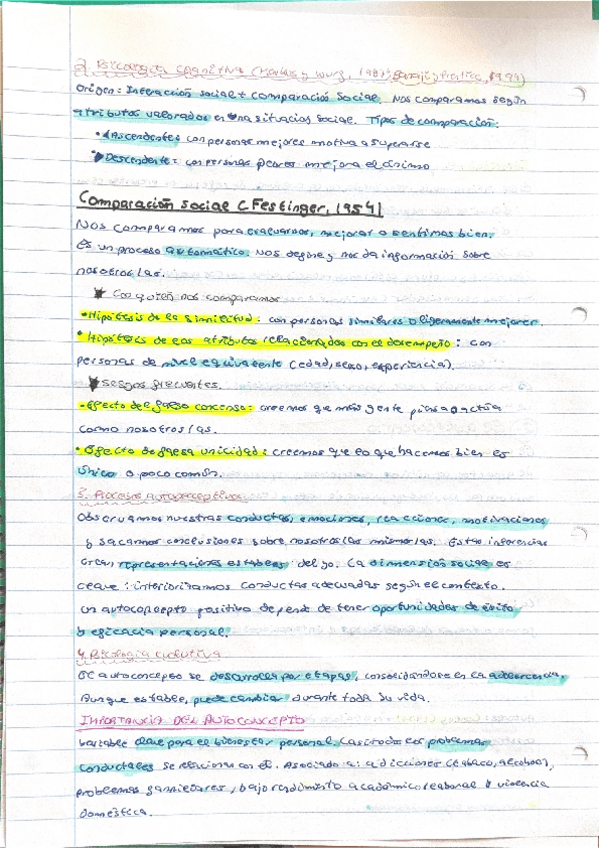 2. Psicología cognitiva (Markus y Wurf, 1987;
Origen: Interacción social + Comparación Social. Nos comparamos según
atributos valorados en una situación social. Tipos de comparación:
• Ascendente: con personas mejores motiva a superarse
• Descendente: con personas peores mejora el ánimo
Comparación social (Festinger, 1954)
Nos comparamos para evaluarnos, mejorar o sentirnos bien.
Es un proceso automático. Nos define y nos da información sobre
nosotros/as.
Con quién nos comparamos
• Hipótesis de la similitud: con personas similares o ligeramente mejores.
• Hipótesis de los atributos relacionados con el desempeño: con
personas de nivel equivalente (edad, sexo, experiencia).
Sesgos frecuentes.
- Efecto de falso consenso: creemos que más gente piensa o actúa
como nosotros/as.
• Efecto de falsa unicidad: creemos que lo que hacemos bien es
único o poco común.
3. Procesos autoperceptivos
Observamos nuestras conductas, emociones, reacciones, motivaciones
y sacamos conclusiones sobre nosotros/as mismos/as. Estas inferencias
crean representaciones estables del yo. La dimensión social es
clave: interiorizamos conductas adecuadas según el contexto.
Un autoconcepto positivo depende de tener oportunidades de éxito
y eficacia personal.
4. Psicología evolutiva
El autoconcepto se desarrolla por etapas, consolidándose en la adolescencia.
Aunque es estable, puede cambiar durante toda su vida.
IMPORTANCIA DEL AUTOCONCEPTO
Variable clave para el bienestar personal. Casi todos los problemas
conductales se relacionan con él. Asociado a: adicciones (tabaco, alcohol),
problemas familiares, bajo rendimiento académico/laboral y violencia
doméstica.